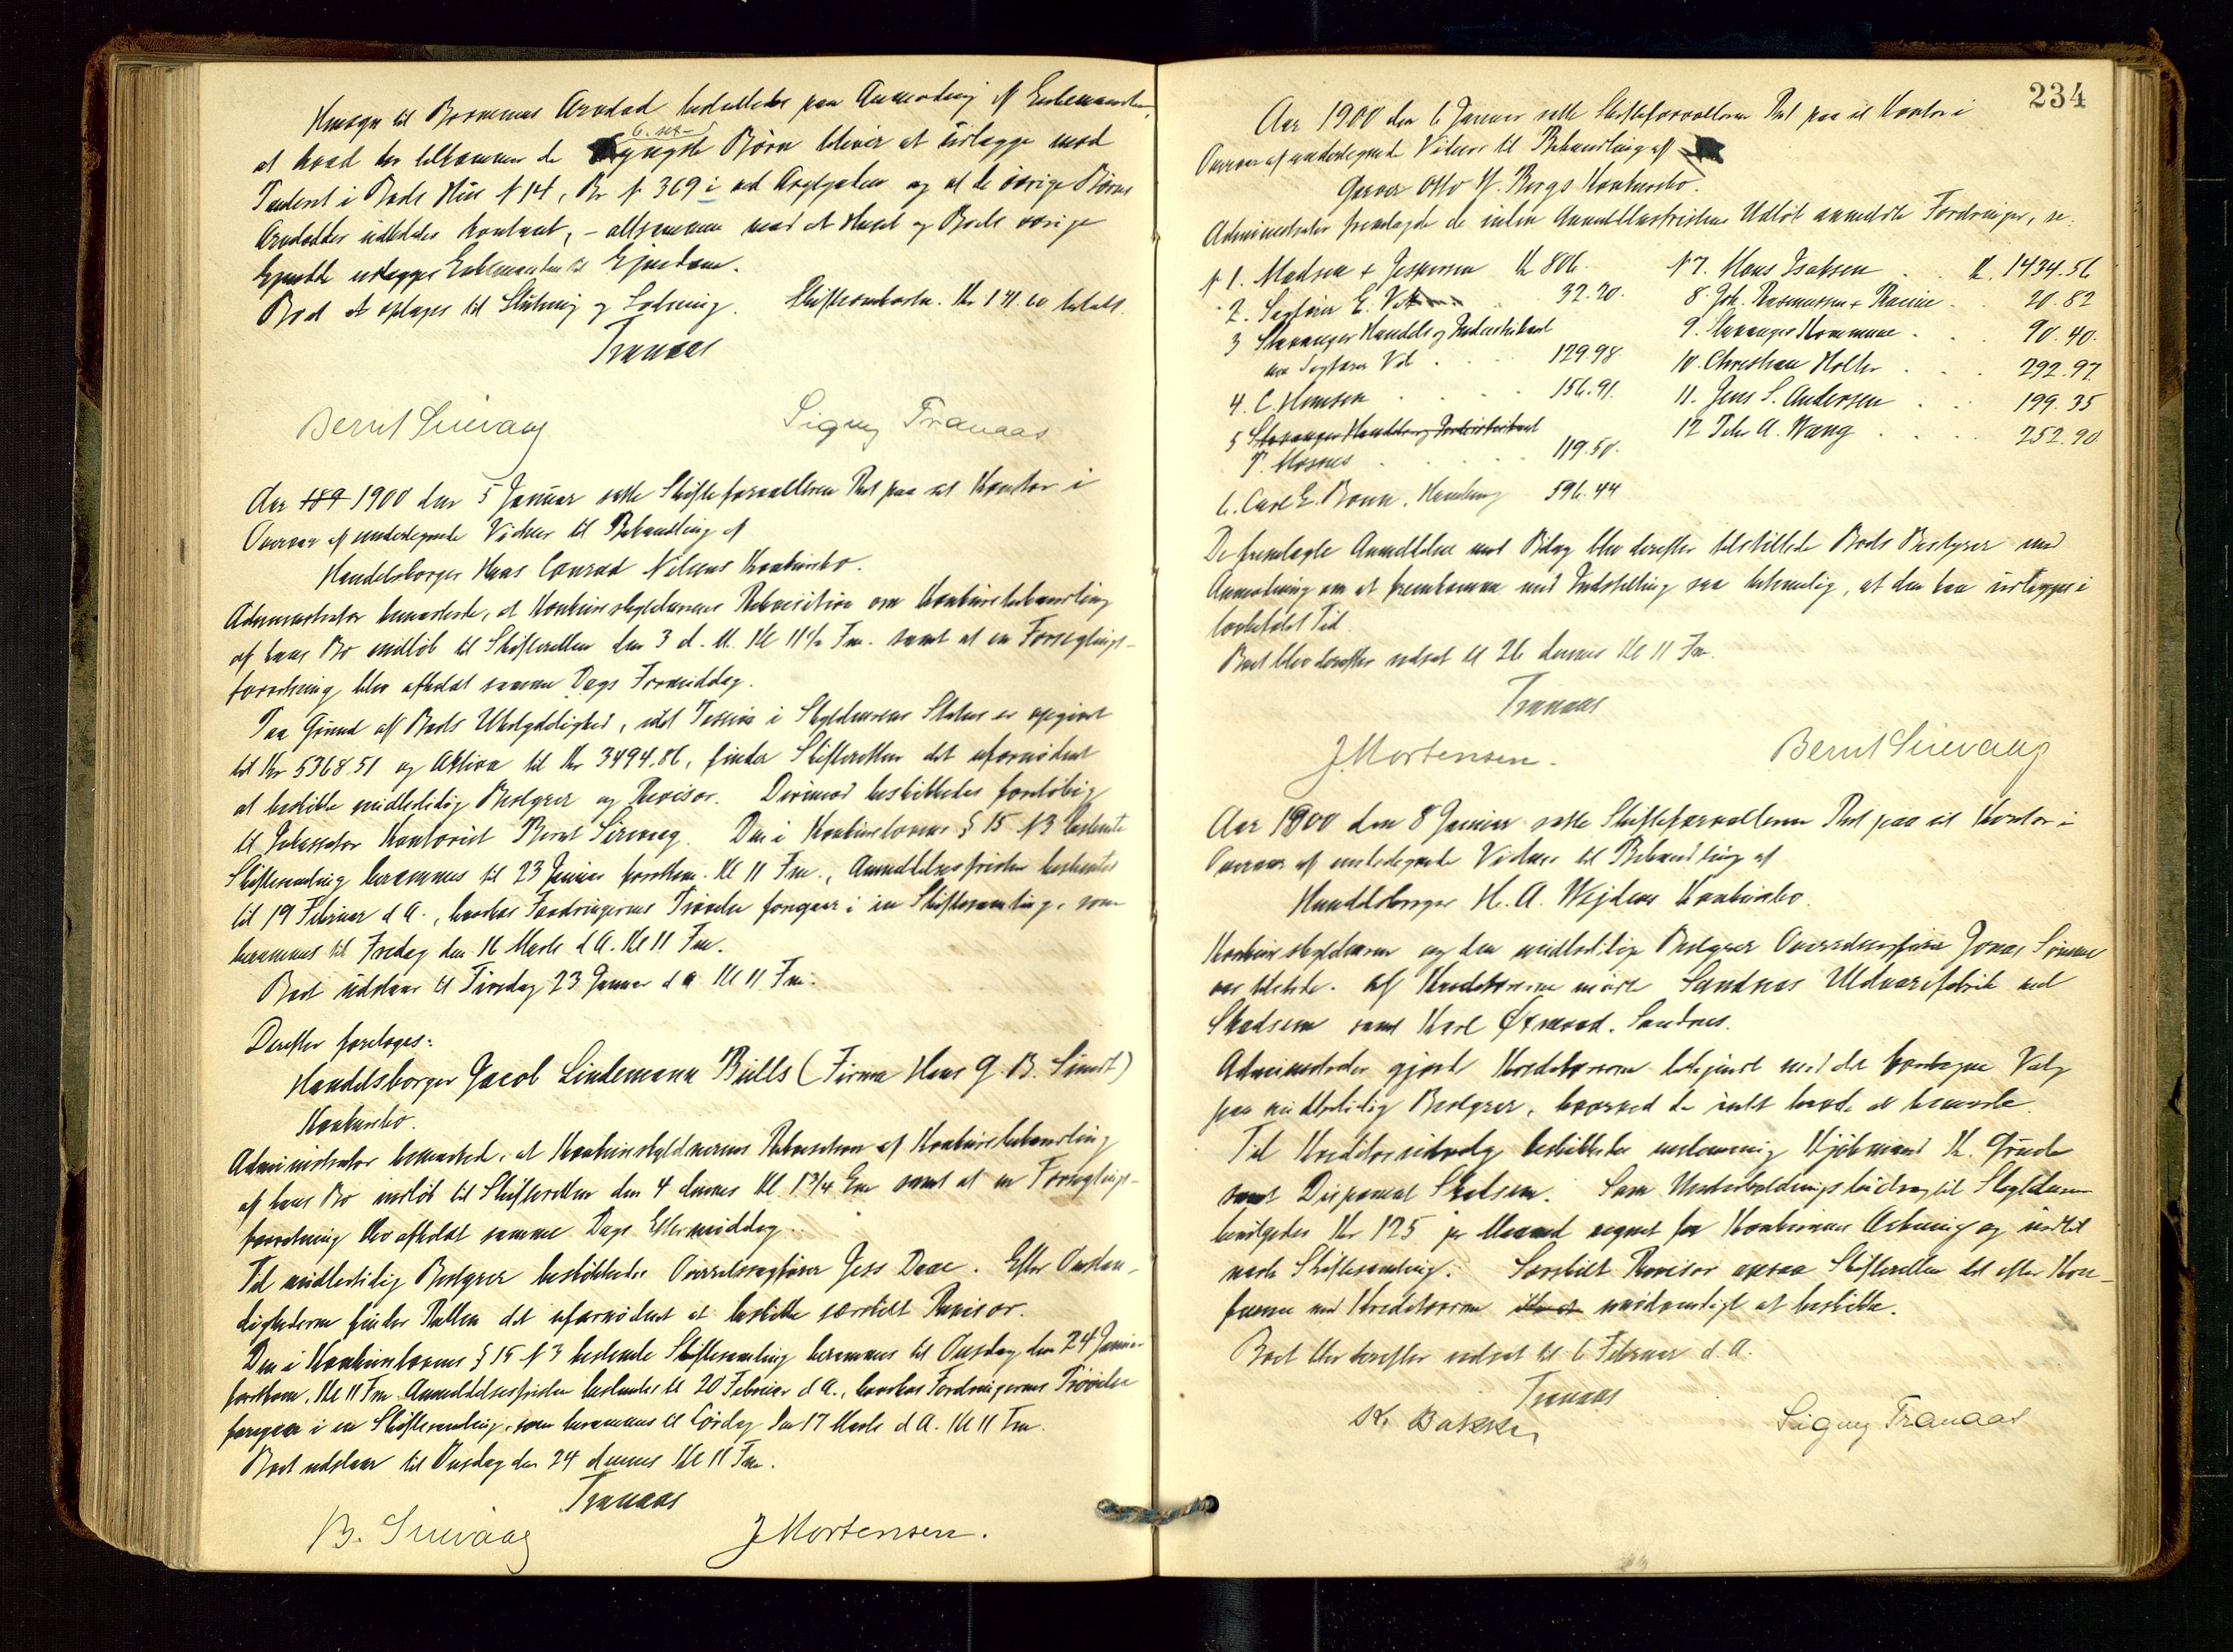 Hensyn til Boernenes Arvelod besluttedes paa Anmodning af Enkemanden
at hvad der tilkommer de 6. yngste Børn bliver at udlægge mod
Panteret i Boets Hus N 14, Br N 369 i ved og at de øvrige Børns
Arvelodder udbetales kontant, - altsammen mod at Huset og Boets øvrige
udlægges Enkemanden til Ejendom.
Boet at optages til Slutning og Lodning. Skifteomkostn. Kr 141.60 betalt.
Tranaas
Bernt Sirevaag Signy Tranaas
Aar 189 1900 den 5 Januar satte Skifteforvalteren Ret paa sit Kontor i
Overvær af undertegnede Vidner til Behandling af
Handelsborger Hans Conrad Nilsens Konkursbo.
Administrator bemærkede, at Konkursskyldnerens Rekvisition om Konkursbehandling
af hans Bo indløb til Skifteretten den 3 d. M. Kl 11½ Fm. samt at en Forseglings-
forretning blev afholdt samme Dags Formiddag.
Paa Grund af Boets Ubetydelighed, idet Passiva i Skyldnerens Status er opgivet
til Kr 5368.51 og Aktiva til Kr 3494.86, finder Skifteretten det ufornødent
at beskikke midlertidig Bestyrer og Revisor. Derimod beskikkedes foreløbig
til Inkassator Kontorist Bernt Sirevaag. Den i Konkurslovens § 15 N 3 bestemte
Skiftesamling berammes til 23 Januar førstkom. Kl 11 Fm., Anmeldelsesfristen bestemtes
til 19 Februar d A., hvorhos Fordringernes Prøvelse foregaar i en Skiftesamling, som
berammes til Fredag den 16 Marts d A. Kl 11 Fm.
Boet udstaar til Tirsdag 23 Januar d a Kl 11 Fm.
Derefter foretoges:
Handelsborger Jacob Lindemann Bulls (Firma Hans G. B. Sundt)
Konkursbo.
Administrator bemærkede, at Konkursskyldnerens Rekvisition af Konkursbehandling
af hans Bo indløb til Skifteretten den 4 dennes Kl 1¾ Em samt at en Forseglings-
forretning blev afholdt samme Dags Eftermiddag.
Til midlertidig Bestyrer beskikkedes Overretssagfører Jess Daae. Efter Omstæn-
dighederne finder Retten det ufornødent at beskikke særskilt Revisor.
Den i Konkurslovens § 15 N 3 bestemte Skiftesamling berammes til Onsdag den 24 Januar
førstkom. Kl 11 Fm. Anmeldelsesfristen bestemtes til 20 Februar d A., hvorhos Fordringernes Prøvelse
foregaar i en Skiftesamling, som berammes til Lørdag den 17 Marts d A. Kl 11 Fm.
Boet udstaar til Onsdag den 24 dennes Kl 11 Fm.
Tranaas
B. Sirevaag J Mortensen.
234
Aar 1900 den 6 Januar satte Skifteforvalteren Ret paa sit Kontor i
Overvær af undertegnede Vidner til Behandling af
Garver Otto H. Bergs Konkursbo.
Administrator fremlagde de inden Anmeldelsesfristens Udløb anmeldte Fordringer, se:
N 1. Madsen & Jespersen Kr 806.
2. Sagfører E. 32.20.
3 Stavanger Handels og Industribank
ved Sagfører 129.98.
4. C. Homsen 156.91.
5 Stavanger Handels og Industribank
T. Mosnes 119.50.
6. Carl E. Bonn. Hamburg 596.44
N 7. Hans Isaksen Kr. 1434.56
8. Joh. Rasmussen & 20.82
9. Stavanger Kommune 90.40.
10. Christian Holter 292.97
11. Jens S. Andersen 199.35
12 A. Wang 252.90
De fremlagte Anmeldelser med Bilag blev derefter tilstillede Boets Bestyrer med
Anmodning om at fremkomme med Indstilling saa betimelig, at den kan udlægges i
lovbefalet Tid.
Boet blev derefter udsat til 26 dennes Kl 11 Fm.
Tranaas
J. Mortensen. Bernt Sirevaag
Aar 1900 den 8 Januar satte Skifteforvalteren Ret paa sit Kontor i
Overvær af undertegnede Vidner til Behandling af
Handelsborger H. A. Wejdens Konkursbo.
Konkursskyldneren og den midlertidige Bestyrer Overretssagfører Jonas Sømme
var tilstede. Af Kreditorerne mødte Sandnes Uldvarefabrik ved
Skadsem samt Karl Sandnes.
Administrator gjorde Kreditorerne bekjendt med det foretagne Valg
paa midlertidig Bestyrer, hvorved de intet havde at bemærke.
Til Kreditorudvalg beskikkedes Kjøbmand K. Grude
samt Disponent Skadsem. Som Underholdningsbidrag til Skyldneren
bevilgedes Kr 125 pr Maaned regnet fra Konkursens Aabning og indtil
næste Skiftesamling. Særskilt Revisor ansaa Skifteretten det efter Kon-
ferance med Kreditorerne unødvendigt at beskikke.
Boet blev derefter udsat til 6 Februar d. A.
Tranaas
K. Bakken Signy Tranaas